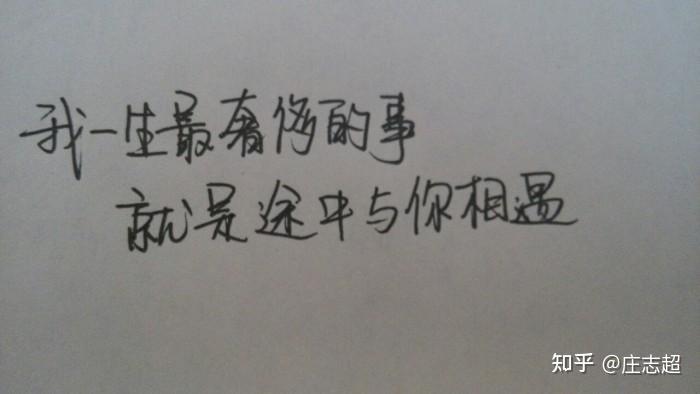 我一生最奢侈的事
就是途中与你相遇
知乎 @庄志超